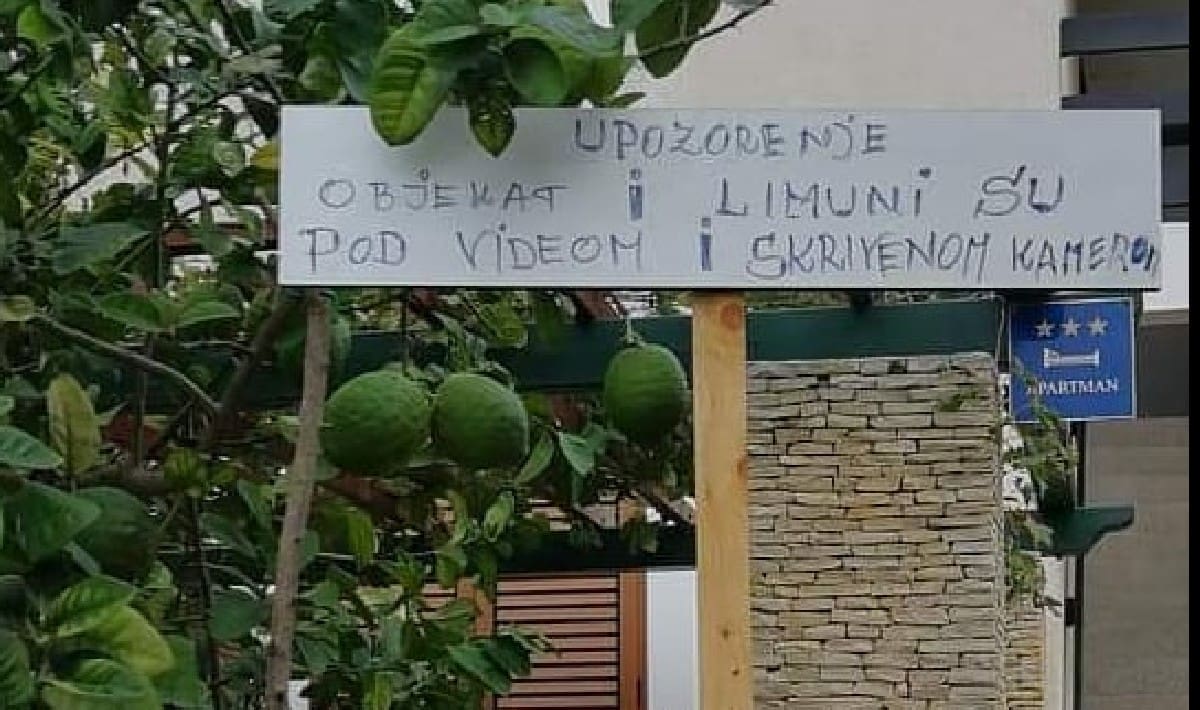 UPOZORENJE
OBJEKAT i LIMUNi SU
POD ViDEOM i SKRIVENOM KAMEROM
APARTMAN